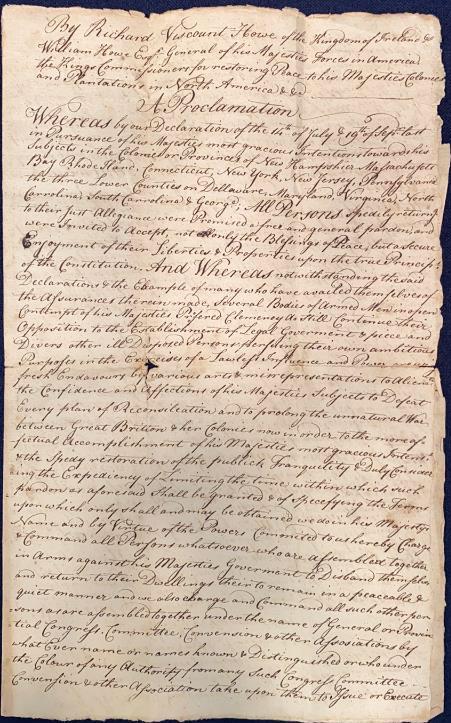 By Richard Viscount Howe of the Kingdom of Ireland &
William Howe Esqr. General of his Majesties Forces in America
the Kings Commissioners for restoring Peace to his Majesties Colonies
and Plantations in North America &c
A Proclamation
Whereas by our Declaration of the 14th of July & 19th of Sept. last
in Pursuance of his Majesties most gracious Intentions towards his
Subjects in the Colonies or Provinces of New Hampshire Massachusets
Bay Rhode Island, Connecticut, New York, New Jersey, Pennsylvania
the three Lower Counties on Dellaware, Maryland, Virginia, North
Carrolina, South Carrolina & Georga, All Persons speedily returng
to their just Allegiance were Promised a free and general pardon, and
were Invited to Accept, not only the Blessings of Peace, but a Secure
Enjoyment of their Liberties & Properties upon the true Princip
of the Constitution. And Whereas notwithstanding the said
Declarations & the Example of many who have availed themselves of
the Assurances therein made, Several Bodies of Armed Men in open
Contempt of his Majesties Clemency do Still Continue their
Opposition to the Establishment of Legal Goverment & piece and
Divers other ill Disposed Persons persuing their own ambitious
Purposes in the Exercises of a Lawless Influence and Power
fresh Endavours by various arts & misrepresentations to Alienate
the Confidence and Affections of his Majesties Subjects to Defeat
Every plan of Reconseleation and to prolong the unnatural War
between Great Brition & her Colonies now in order to the more ef
fectual Accomplishment of his Majesties most gracious Intent
& the Spedy restoration of the publick Tranquility & Duly Consider
ing the Expediency of Limiting the time within which such
pardon as aforesaid Shall be granted & of Specefying the Terms
upon which only shall and may be obtained we do in his Majestys
Name and by Virtue of the Powers Commited to us hereby Charge
& Command all Persons whatsoever who are Assembled together
in Arms against his Majesties Goverment to Disband themselves
and return to their Dwellings their to remain in a peaceable &
quiet manner and we also charge and Command all such other per
sons as are assembled together under the name of General or Provin
tial Congress, Committee, Convension & other Assosiations by
what Ever name or names known & Distinguished or who under
the Colour of any Authority from any Such Congress Committee
Convension & other Association take upon them to Issue or Execute